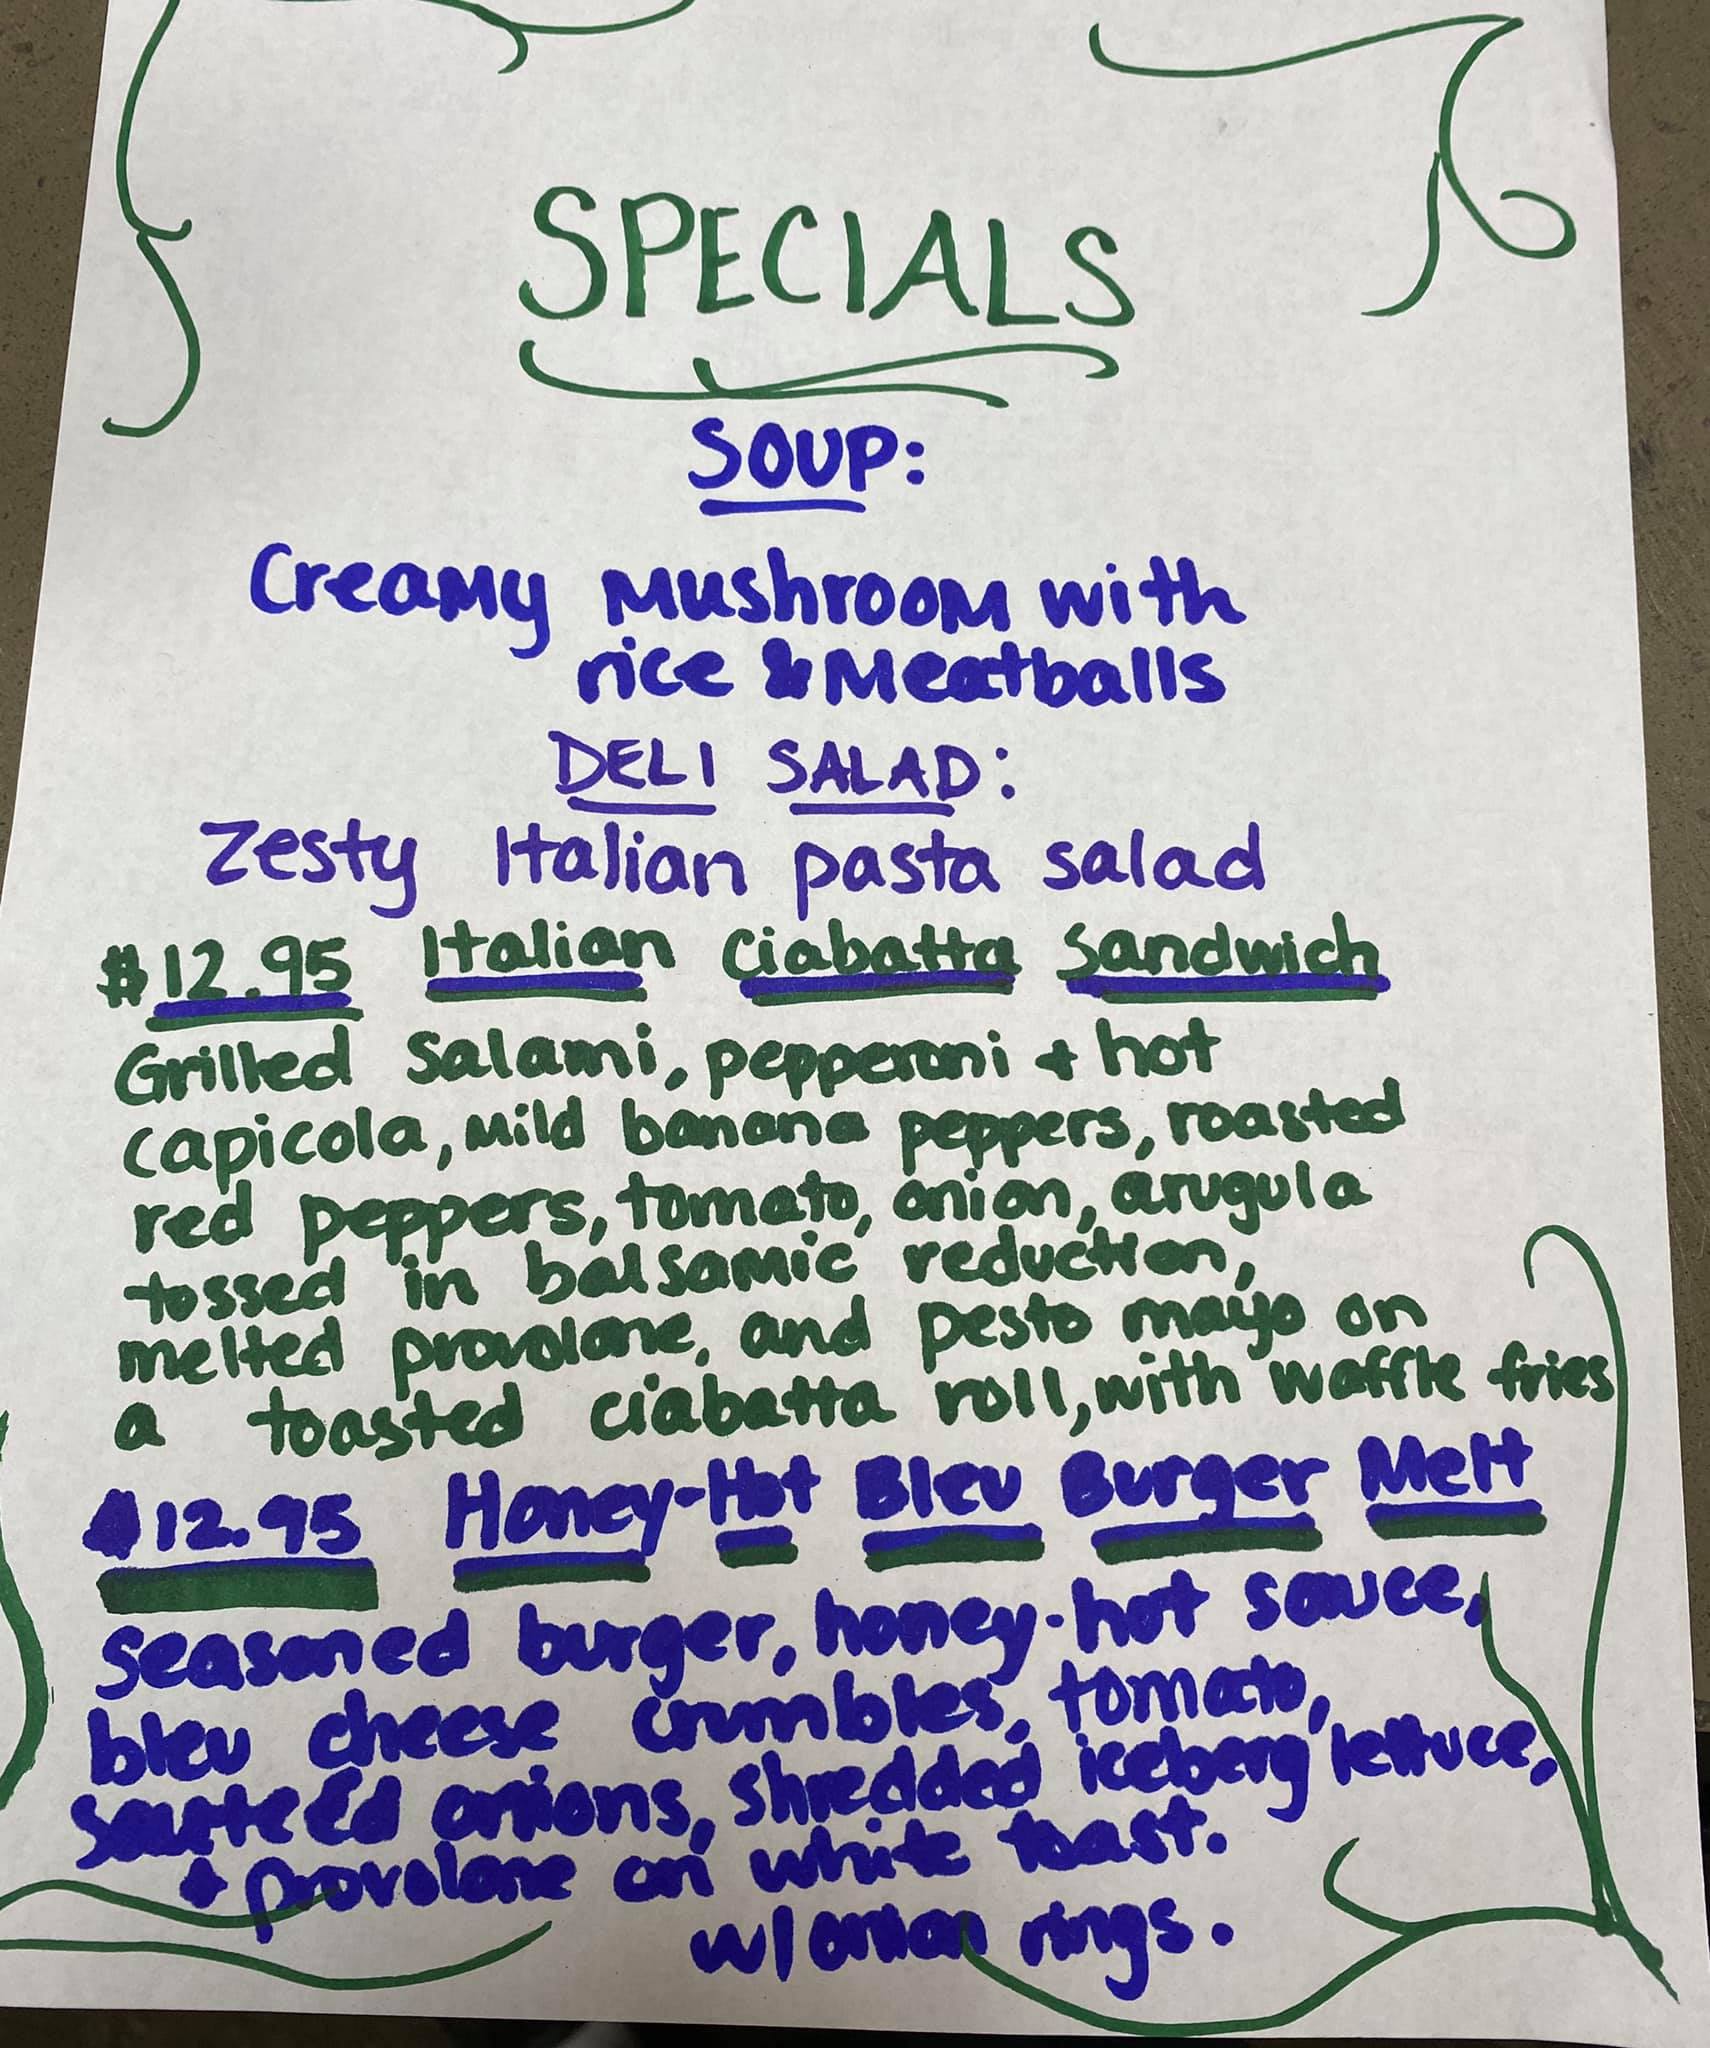 SPECIALS
SOUP:
Creamy Mushroom with
rice & Meatballs
DELI SALAD:
Zesty Italian pasta salad
$12.95 Italian Ciabatta Sandwich
Grilled Salami, pepperoni + hot
capicola, mild banana peppers, roasted
red peppers, tomato, onion, arugula
tossed in balsamic reduction,
melted provolone, and pesto mayo on
a toasted ciabatta roll, with waffle fries
$12.95 Honey-Hot Bleu Burger Melt
seasoned burger, honey-hot sauce,
bleu cheese crumbles, tomato,
sauteed onions, shredded iceberg lettuce,
+ provolone on white toast.
w/ onion rings.